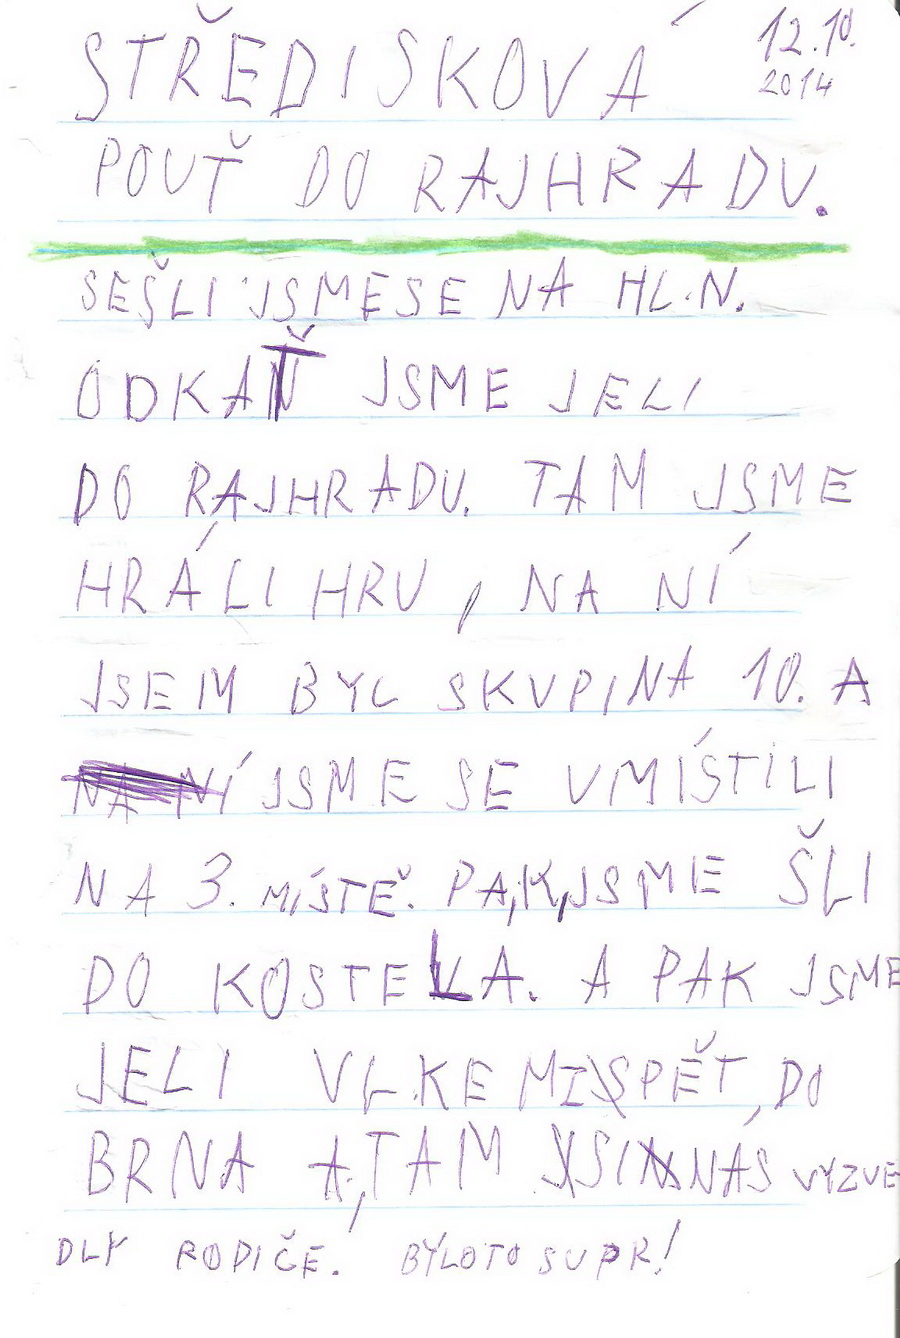 STŘEDISKOVÁ 12.10.
2014
POUŤ DO RAJHRADU.
SEŠLI JSMESE NA HL.N.
ODKAŤ JSME JELI
DO RAJHRADU. TAM JSME
HRÁLI HRU, NA NÍ
JSEM BYL SKUPINA 10. A
NA NÍ JSME SE UMÍSTILI
NA 3. MÍSTĚ. PAK JSME ŠLI
DO KOSTELA. A PAK JSME
JELI VLKEM ZPĚT, DO
BRNA A, TAM SI NÁS VYZVE
DLY RODIČE. BYLOTO SUPR!